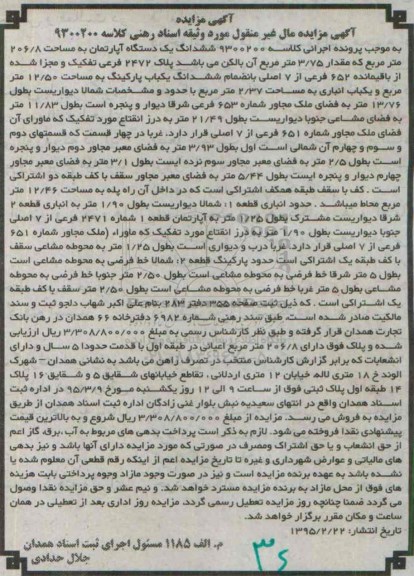 آگهی مزایده
آگهی مزایده مال غیر منقول مورد وثیقه اسناد رهنی کلاسه ۹۳۰۰۲۰۰
به موجب پرونده اجرائی کلاسه ۹۳۰۰۲۰۰ ششدانگ یک دستگاه آپارتمان به مساحت ۲۰۶/۸
متر مربع که مقدار ۳/۷۵ متر مربع آن بالکن می باشد پلاک ۲۴۷۲ فرعی تفکیک و مجزا شده
از باقیمانده ۶۵۲ فرعی از ۷ اصلی بانضمام ششدانگ یکباب پارکینگ به مساحت ۱۲/۵۰ متر
مربع و یکباب انباری به مساحت ۲/۳۷ متر مربع با حدود و مشخصات شمالا دیواریست بطول
۱۳/۷۶ متر به فضای ملک مجاور شماره ۶۵۳ فرعی شرقا دیوار و پنجره است بطول ۱۱/۸۳ متر
به فضای مشاعی جنوبا دیواریست بطول ۲۱/۴۹ متر به درز انقاع مورد تفکیک که ماورای آن
فضای ملک مجاور شماره ۶۵۱ فرعی از ۷ اصلی قرار دارد. غربا در چهار قسمت که قسمتهای دوم
و سوم و چهارم آن شمالی است اول بطول ۳/۹۳ متر به فضای معبر مجاور دوم دیوار و پنجره
است بطول ۲/۵ متر به فضای معبر مجاور سوم نرده ایست بطول ۳/۱ متر به فضای معبر مجاور
چهارم دیوار و پنجره ایست بطول ۵/۴۴ متر به فضای معبر مجاور سقف با کف طبقه دو اشتراکی
است . کف با سقف طبقه همکف اشتراکی است که در داخل آن راه پله به مساحت ۱۲/۴۶ متر
مربع محاط میباشد . حدود انباری قطعه ۱: شمالا دیواریست بطول ۱/۹۰ متر به انباری قطعه ۲
شرقا دیواریست مشترک بطول ۱/۲۵ متر به آپارتمان قطعه ۱ شماره ۲۴۷۱ فرعی از ۷ اصلی
جنوبا دیواریست بطول ۱/۹۰ متر به درز انقاع مورد تفکیک که ماوراء (ملک مجاور شماره ۶۵۱
فرعی از ۷ اصلی قرار دارد. غربا درب و دیواری است بطول ۱/۲۵ متر به محوطه مشاعی سقف
با کف طبقه یک اشتراکی است حدود پارکینگ قطعه ۲: شمالا خط فرضی به محوطه مشاعی است
بطول ۵ متر شرقا خط فرضی به محوطه مشاعی است بطول ۲/۵۰ متر جنوبا خط فرضی به محوطه
مشاعی بطول ۵ متر غربا خط فرضی به محوطه مشاعی است بطول ۲/۵۰ متر سقف با کف طبقه
یک اشتراکی است . که ذیل ثبت صفحه ۳۵۵ دفتر ۲۸۳ بنام علی اکبر شهاب دلجو ثبت و سند
مالکیت صادر شده است. طبق سند رهنی شماره ۶۹۸۲ دفترخانه ۶۶ همدان در رهن بانک
تجارت همدان قرار گرفته و طبق نظر کارشناس رسمی به مبلغ ۳/۳۰۸/۸۰۰/۰۰۰ ریال ارزیابی
شده و پلاک فوق دارای ۲۰۶/۸ متر مربع اعیانی در طبقه اول با قدمت حدودا ۵ سال و دارای
انشعابات که برابر گزارش کارشناس منتخب در تصرف راهن می باشد به نشانی همدان – شهرک
الوند خ ۱۸ متری لاله، خیابان ۱۲ متری اردلانی ، تقاطع خیابانهای شقایق ۵ و شقایق ۱۶ پلاک
۱۴ طبقه اول پلاک ثبتی فوق از ساعت ۹ الی ۱۲ روز یکشنبه مورخ ۹۵/۳/۹ در اداره ثبت
اسناد همدان واقع در انتهای سعیدیه نبش بلوار غنی زادگان اداره ثبت اسناد همدان از طریق
مزایده به فروش می رسد. مزایده از مبلغ ۳/۳۰۸/۸۰۰/۰۰۰ ریال شروع و به بالاترین قیمت
پیشنهادی نقدا فروخته می شود. لازم به ذکر است پرداخت بدهی های مربوط به آب ،برق، گاز اعم
از حق انشعاب و یا حق اشتراک ومصرف در صورتی که مورد مزایده دارای آنها باشد و نیز بدهی
های مالیاتی و عوارض شهرداری و غیره تا تاریخ مزایده اعم از اینکه رقم قطعی آن معلوم شده یا
نشده باشد به عهده برنده مزایده است و نیز در صورت وجود مازاد وجوه پرداختی بابت هزینه
های فوق از محل مازاد به برنده مزایده مسترد خواهد شد. و نیم عشر و حق مزایده نقدا وصول
می گردد ضمنا چنانچه روز مزایده تعطیل رسمی گردد، مزایده روز اداری بعد از تعطیلی در همان
ساعت و مکان مقرر برگزار خواهد شد.
تاریخ انتشار: ۱۳۹۵/۲/۲۲
م. الف ۱۱۸۵ مسئول اجرای ثبت اسناد همدان
جلال حدادی